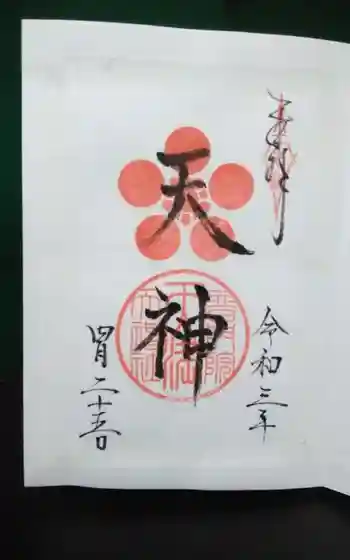 奉拝
令和三年
天神
四月二十五日